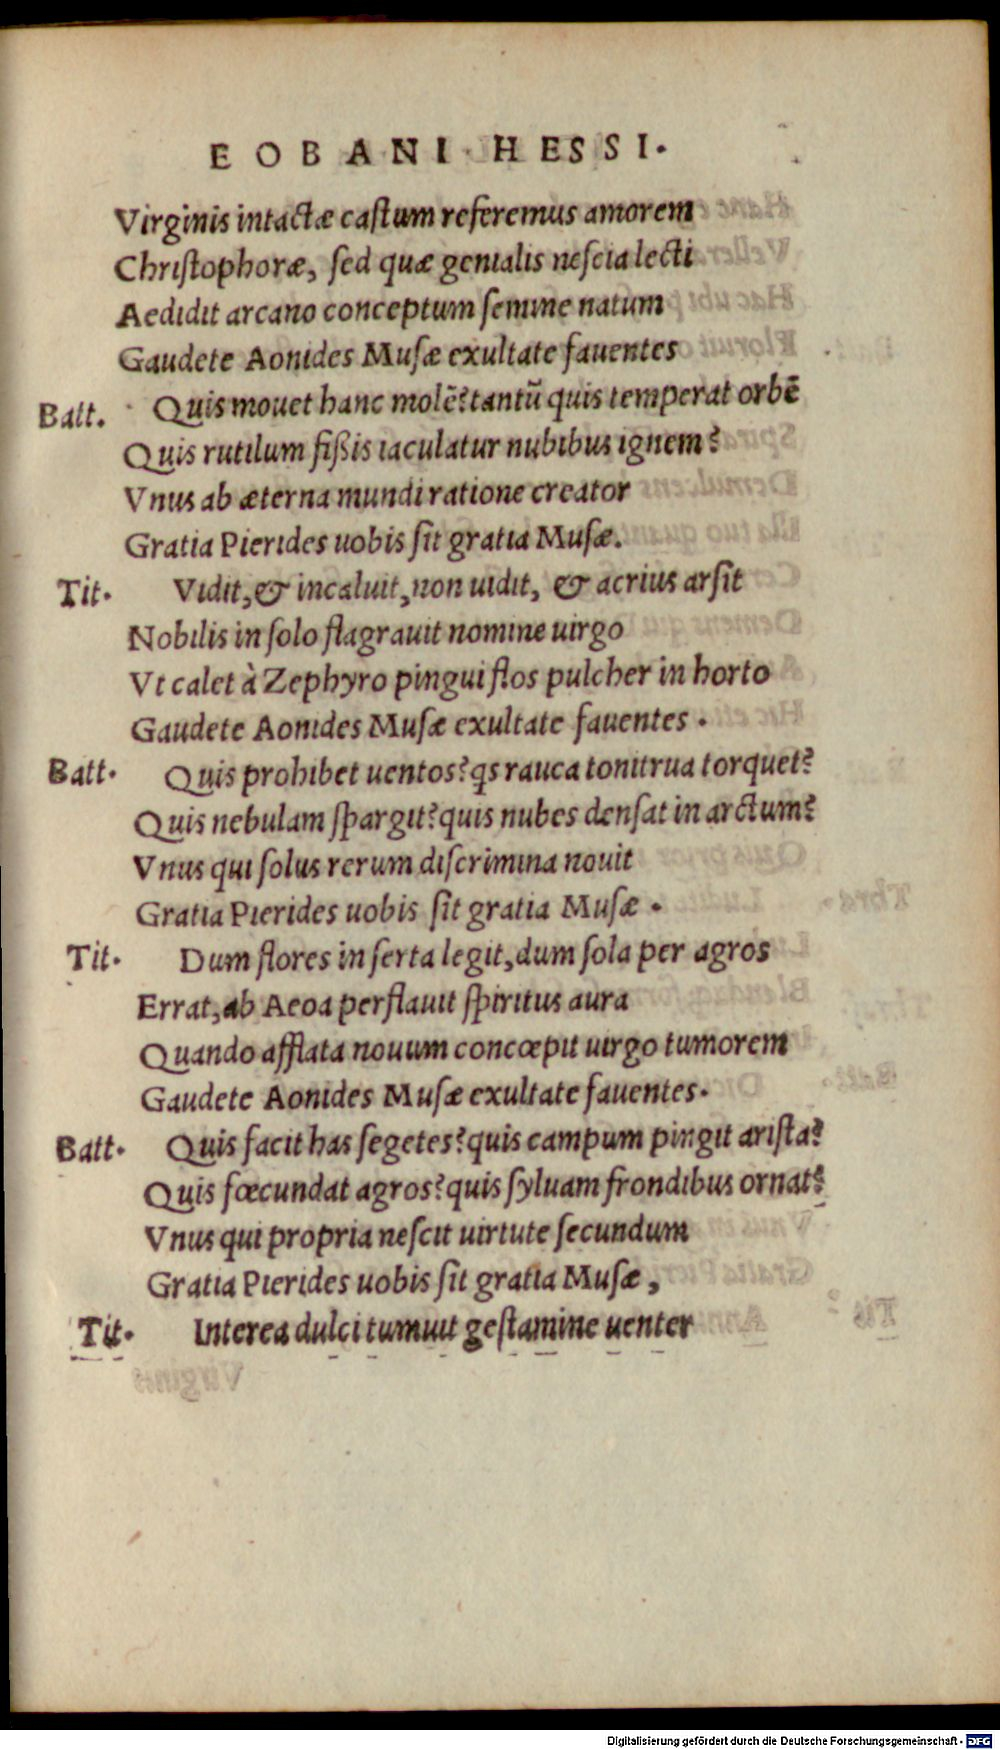 EOBANI HESSI.
Virginis intactæ castum referemus amorem
Christophoræ, sed quæ genialis nescia lecti
Aedidit arcano conceptum semine natum
Gaudete Aonides Musæ exultate fauentes
Batt. Quis mouet hanc molē? tantū quis temperat orbē
Quis rutilum fißis iaculatur nubibus ignem?
Vnus ab æterna mundi ratione creator
Gratia Pierides uobis sit gratia Musæ.
Tit. Vidit, & incaluit, non uidit, & acrius arsit
Nobilis in solo flagrauit nomine uirgo
Vt calet à Zephyro pingui flos pulcher in horto
Gaudete Aonides Musæ exultate fauentes.
Batt. Quis prohibet uentos? qs rauca tonitrua torquet?
Quis nebulam spargit? quis nubes densat in arctum?
Vnus qui solus rerum discrimina nouit
Gratia Pierides uobis sit gratia Musæ.
Tit. Dum flores in serta legit, dum sola per agros
Errat, ab Aeoa perflauit spiritus aura
Quando afflata nouum concœpit uirgo tumorem
Gaudete Aonides Musæ exultate fauentes.
Batt. Quis facit has segetes? quis campum pingit arista?
Quis fœcundat agros? quis syluam frondibus ornat?
Vnus qui propria nescit uirtute secundum
Gratia Pierides uobis sit gratia Musæ,
Tit. Interea dulci tumuit gestamine uenter
Digitalisierung gefördert durch die Deutsche Forschungsgemeinschaft - DFG